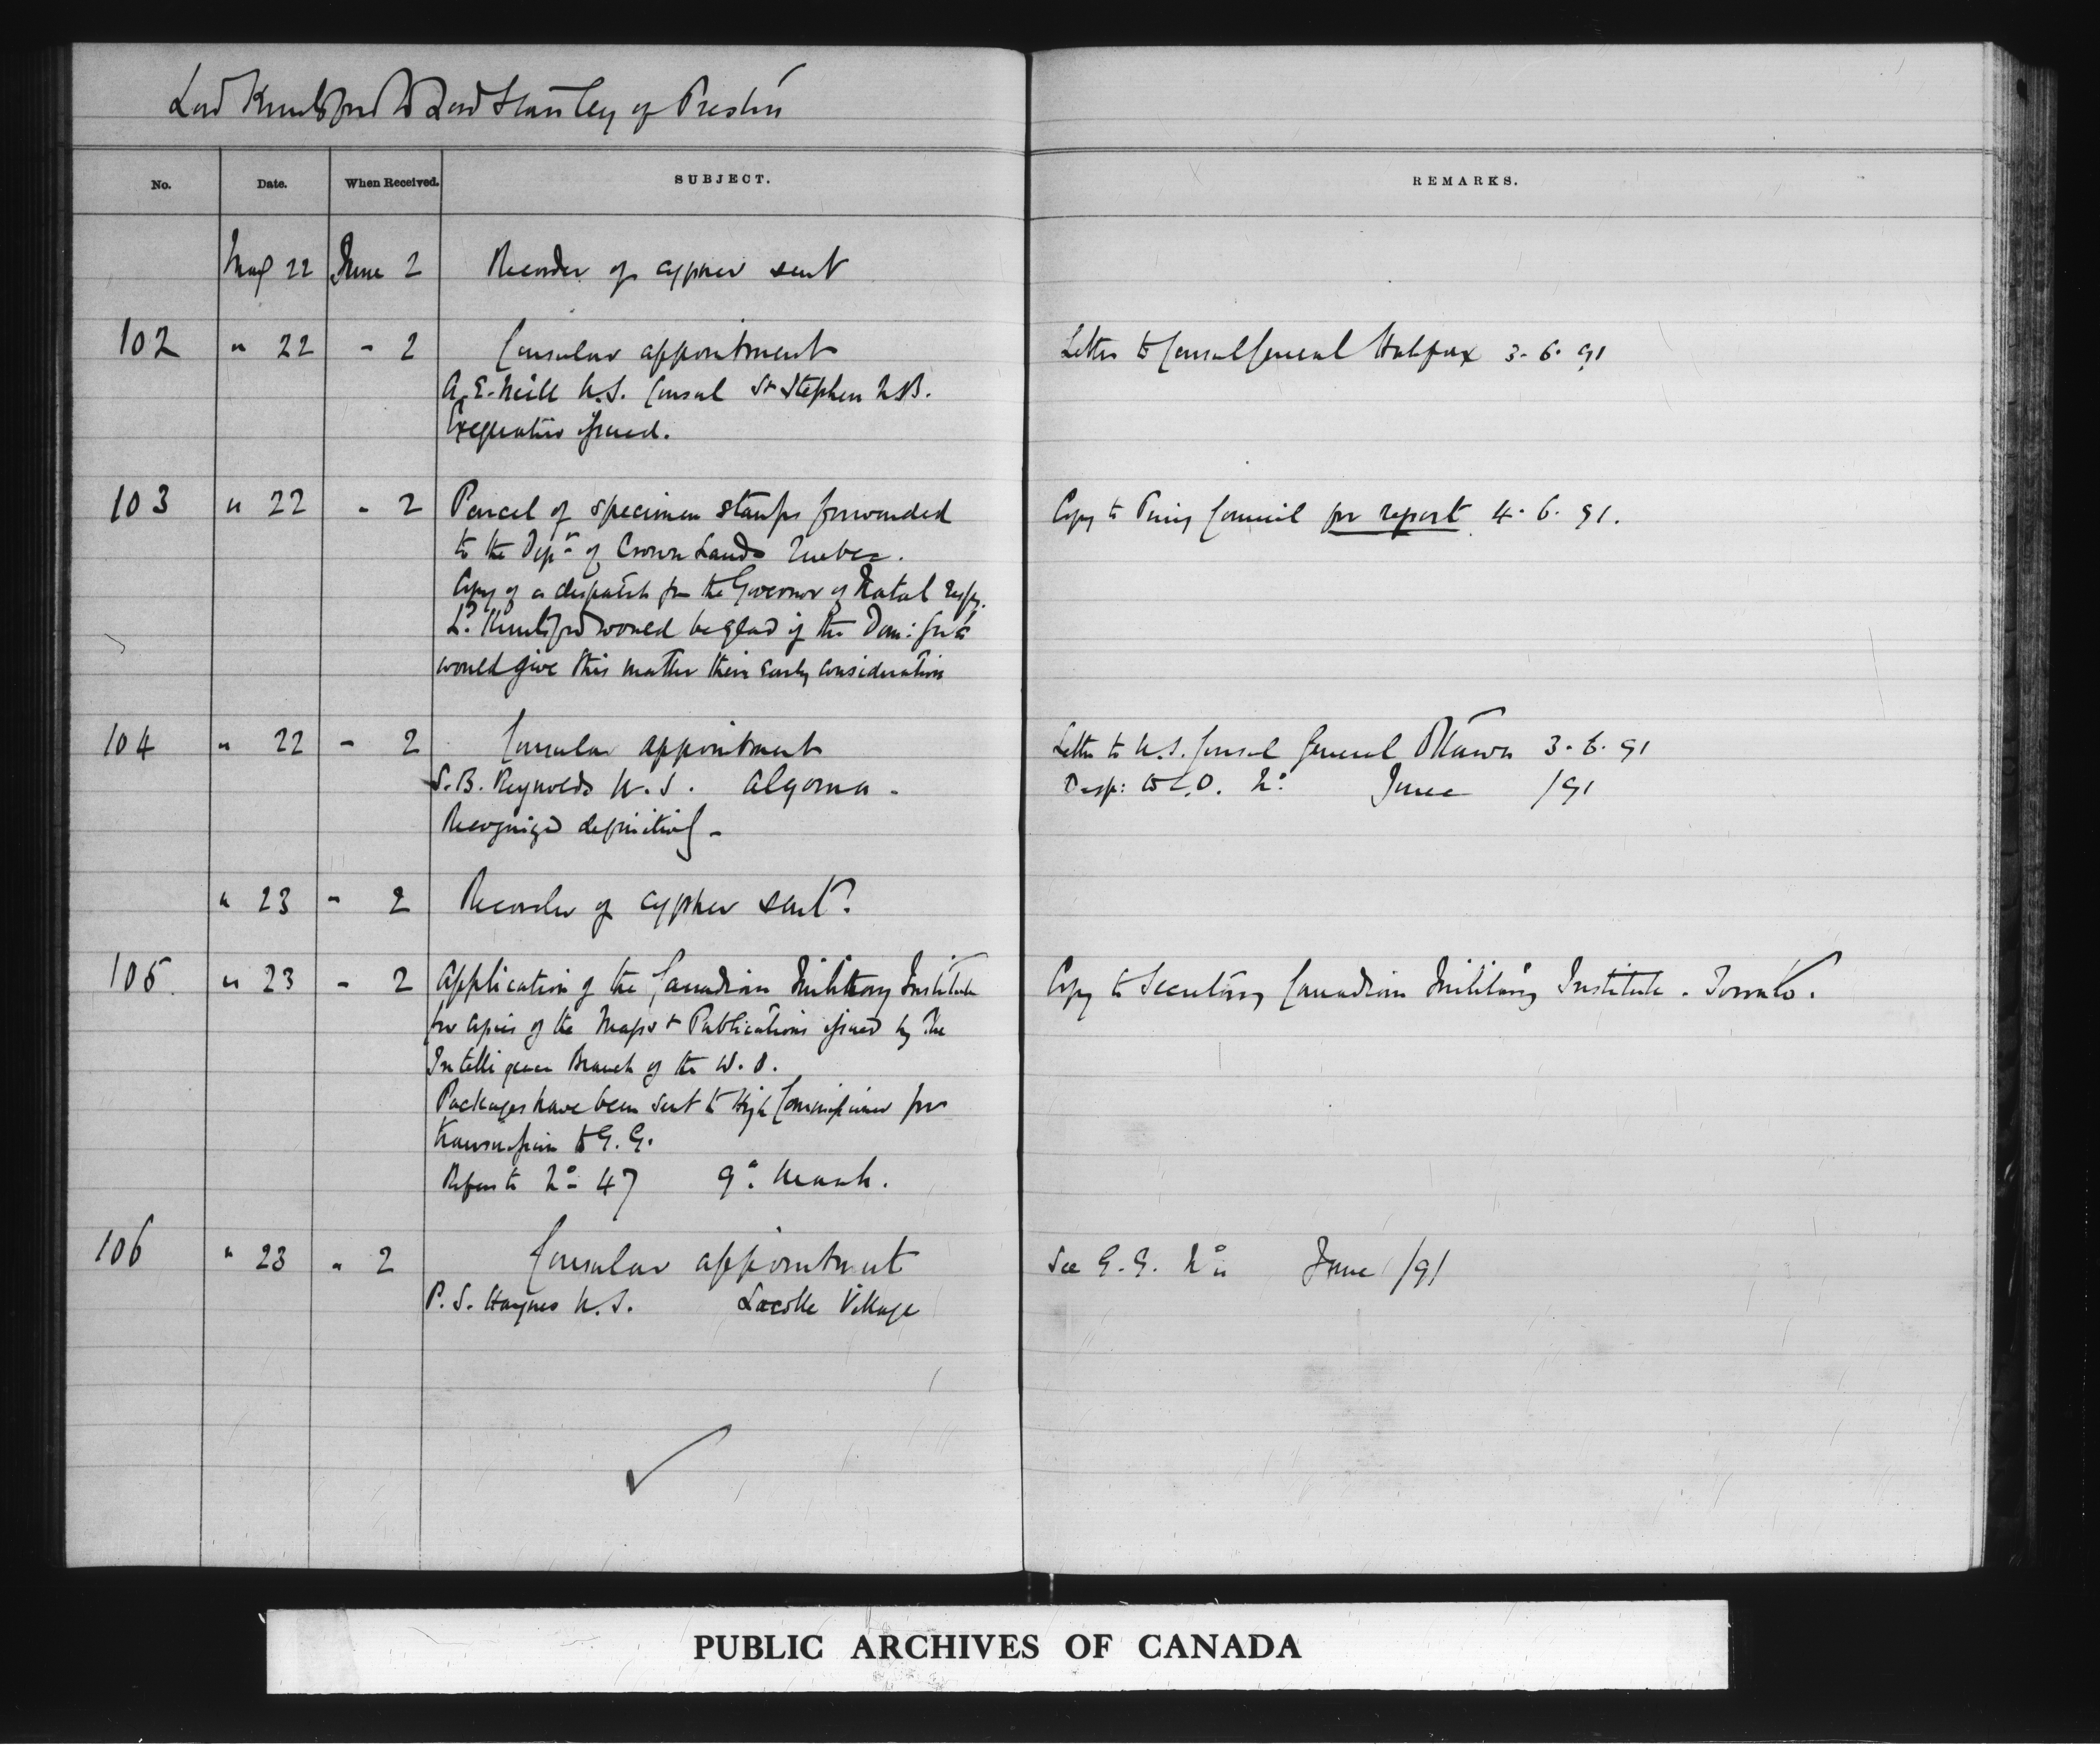 Lord Knutsford to Lord Stanley of Preston
No. Date. When Received. SUBJECT. REMARKS.
May 22 June 2 Recorder of cypher sent
102 " 22 - 2 Consular appointment Letter to Consul General Halifax 3. 6. 91
A. E. Neill U.S. Consul St Stephen N.B.
Exequatur issued.
103 " 22 - 2 Parcel of specimen stamps forwarded Copy to Privy Council for report 4. 6. 91.
to the Dept of Crown Lands Quebec.
Copy of a despatch fm the Governor of Natal respg.
Ld Knutsford would be glad if the Dom: Govt
would give this matter their early consideration
104 " 22 - 2 Consular appointment Letter to U.S. Consul General Ottawa 3. 6. 91
S. B. Reynolds U.S. Algoma - Desp: to C.O. No: June /91
Recognized definitively -
" 23 - 2 Recorder of cypher sent?
105. " 23 - 2 Application of the Canadian Military Institute Copy to Secretary Canadian Military Institute. Toronto.
for copies of the Maps & Publications issued by the
Intelligence Branch of the W.O.
Packages have been sent to High Commissioner for
transmission to G.G.
Refers to No 47 9th March.
106 " 23 - 2 Consular appointment See G.G. No June /91
P. S. Haynes U.S. Lacolle Village
PUBLIC ARCHIVES OF CANADA